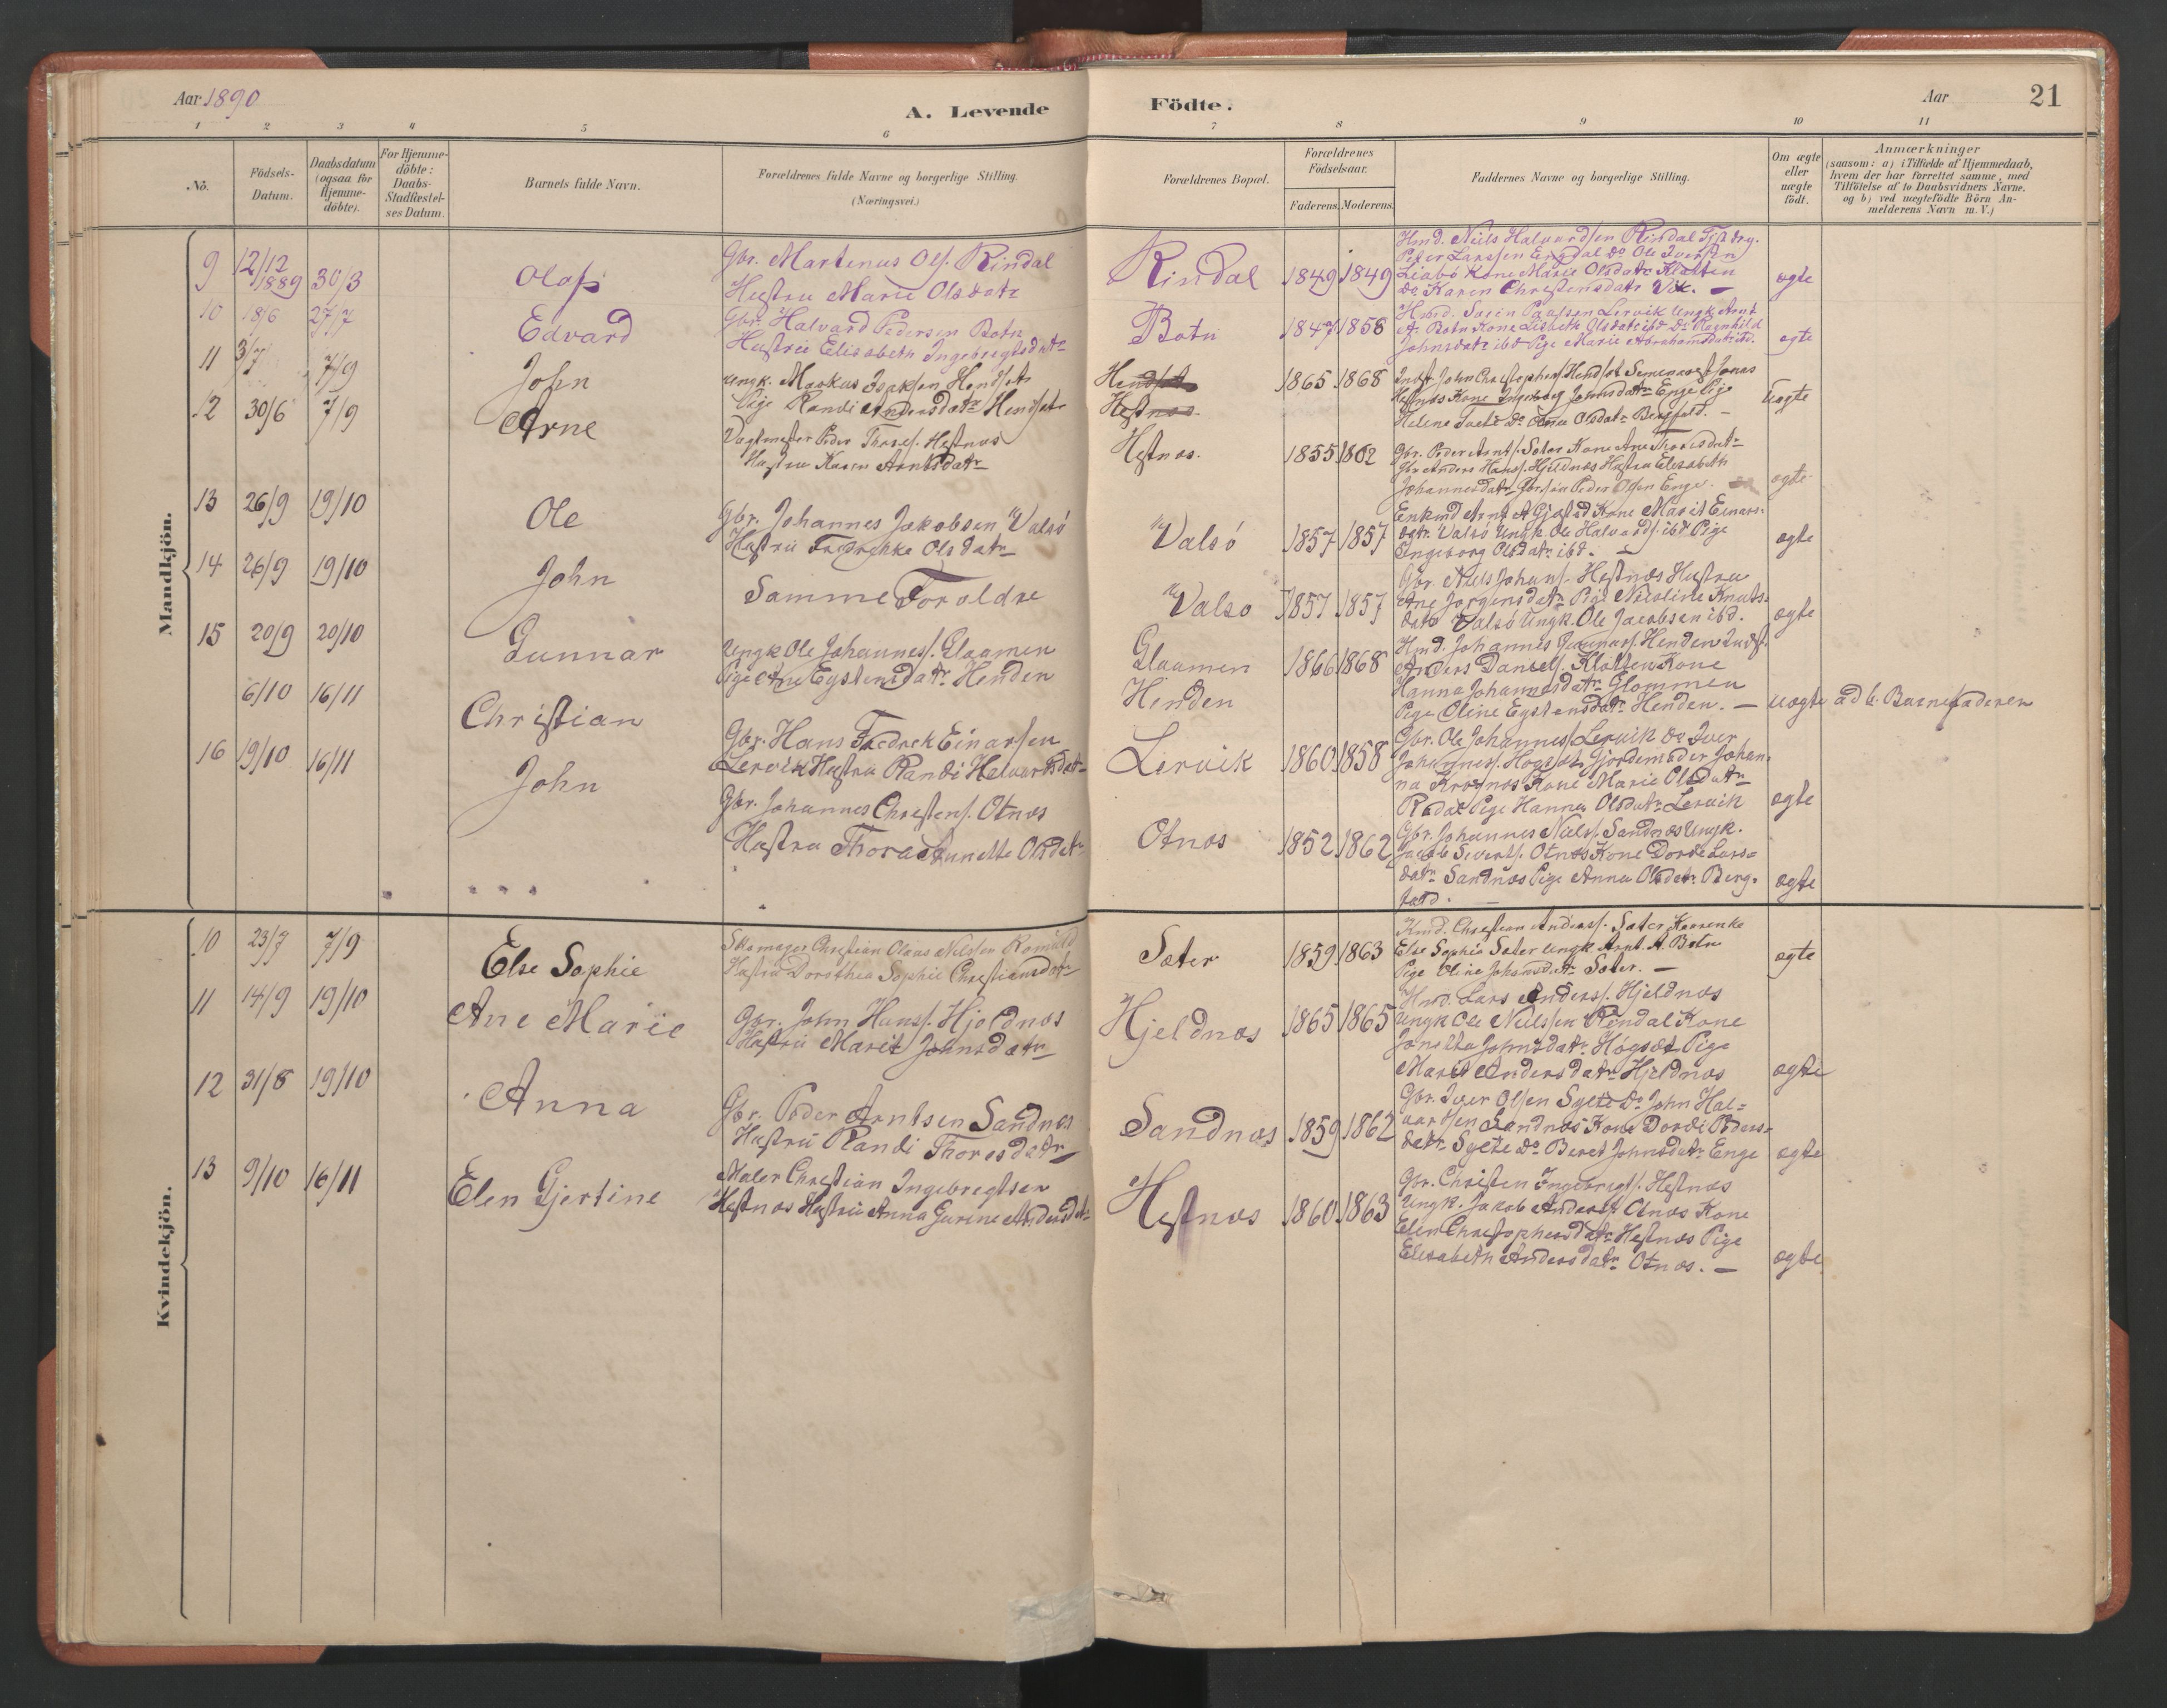 Aar 1890
A. Levende Födte.
Aar
21
1 2 3 4 5 6 7 8 9 10 11
No.
Födsels-Datum.
Daabsdatum (ogsaa for Hjemme-döbte).
For Hjemme-döbte: Daabs-Stadfæstel-ses Datum.
Barnets fulde Navn.
Forældrenes fulde Navne og borgerlige Stilling. (Næringsvei.)
Forældrenes Bopæl.
Forældrenes Födselsaar.
Faderens. Moderens.
Faddernes Navne og borgerlige Stilling.
Om ægte eller uægte födt.
Anmærkninger
(saasom: a) i Tilfælde af Hjemmedaab,
hvem der har forrettet samme, med
Tilföielse af to Daabsvidners Navne,
og b) ved uægtefödte Börn An-
melderens Navn m. V.)
Mandkjön.
9 12/12 1889 30/3 Olaf
Gbr. Martenus Ols. Rindal
Hustru Marie Olsdatr
Rindal 1849 1849
Hmd. Niels Halvardsen Rindal
Peder Larssen Do Ole Iversen
Kone Marie Olsdatr Klætten
Do Karen Christensdatr Vik. —
ægte
10 18/6 27/7 Edvard
Gbr. Halvard Pedersen Botn
Hustru Elisabeth Ingebregtsdatr
Botn 1847 1858
Lervik Ungk Arnt
A. Botn Kone Lisbeth Olsdatr ibd Do Ragnhild
Johnsdatr ibd Pige Marie Abrahamsdatr ibd.
ægte
11 3/7 7/9 John
Ungk. Markus Isaksen Hendset
Pige Randi Andersdatr Hendset
Hendset
Hestnæs
1865 1868
Indst John Christophers. Hendset Seminarist Jonas
Hestnæs Kone Ingeborg Johnsdatr Enge Pige
Helene Do Anne Olsdatr Bergfald. —
Uægte
12 30/6 7/9 Arne
Vagtmester Peder Thores. Hestnæs
Hustru Karen Arntsdatr
Hestnæs. 1855 1862
Gbr. Peder Arnts. Sæter Kone Ane Thoresdatr
Gbr Anders Hanss. Hjeldnæs Hustru Elisabeth
Johannesdatr Peder Olsen Enge.
ægte
13 26/9 19/10 Ole
Gbr. Johannes Jakobsen Valsö
Hustru Fredrikke Olsdatr
Valsö 1857 1857
Enkmd Arnt A Kone Marit Einars-
datr. Valsö Ungk. Ole Halvards. ibd Pige
Ingeborg Olsdatr ibd. —
ægte
14 26/9 19/10 John
Samme Foroldre
Valso 1857 1857
Gbr. Niels Johans. Hestnæs Hustru
Ane Jorgensdatr Pige Nicoline Knuts-
datr Valsö Ungk. Ole Jacobsen ibd.
ægte
15 20/9 20/10 Gunnar
Ungk Ole Johanness. Glaamen
Pige Ane Eystensdatr. Henden
Glaamen
Henden
1866 1868
Hmd. Johannes Gunnars. Henden Indst.
Anders Daniels. Klætten Kone
Hanna Johannesdatr Glommen
Pige Oline Eystensdatr Henden. —
uægte ad b. Barnefaderen
6/10 16/11 Christian
Gbr. Hans Fredrek Einarsen
Lervik Hustru Randi Halvardsdatr
Lervik 1860 1858
Gbr. Ole Johanness Lervik Do Iver
Johanness. Hogset Gjordemoder Johan-
na Krognæs Kone Marie Olsdatr
Rodal Pige Hanna Olsdatr Lervik
ægte
16 19/10 16/11 John
Gbr. Johannes Christens. Otnæs
Hustru Thora Annette Olsdatr
Otnæs 1852 1862
Gbr. Johannes Niels. Sandnæs Ungk.
Jacob Siverts. Otnæs Kone Dorde Lars-
datr Sandnæs Pige Anna Olsdatr. Berg-
fald. —
ægte
Kvindekjön.
10 23/7 7/9 Else Sophie
Skomager Christian Olaus Nielsen
Hustru Dorothea Sophie Christiansdatr
Sæter 1859 1863
Kmd. Christian Anderss. Sæter
Else Sophie Sæter Ungk. Arnt A. Botn
Pige Oline Johansdatr Sæter. —
ægte
11 14/9 19/10 Ane Marie
Gbr. John Hanss. Hjeldnæs
Hustru Marit Johnsdatr
Hjeldnæs 1865 1865
Hmd. Lars Anderss. Hjeldnæs
Ungk Ole Nielsen Rindal Kone
Jonetta Johnsdatr Hogset Pige
Marit Andersdatr Hjeldnæs
ægte
12 31/8 19/10 Anna
Gbr. Peder Arntsen Sandnæs
Hustru Randi Thoresdatr
Sandnæs 1859 1862
Gbr. Iver Olsen Sylte Do John Hal-
vardsen Sandnæs Kone Dordi Peders-
datr. Sylte Do Beret Johnsdatr Enge
ægte
13 9/10 16/11 Elen Gjertine
Maler Christian Ingebregtsen
Hestnæs Hustru Anna Gurine Andersdatr
Hestnæs 1860 1863
Gbr. Christen Ingebrigts. Hestnæs
Ungk. Jakob Anders. Otnæs Kone
Elen Christophersdatr Hestnæs Pige
Elisabeth Andersdatr Otnæs. —
ægte